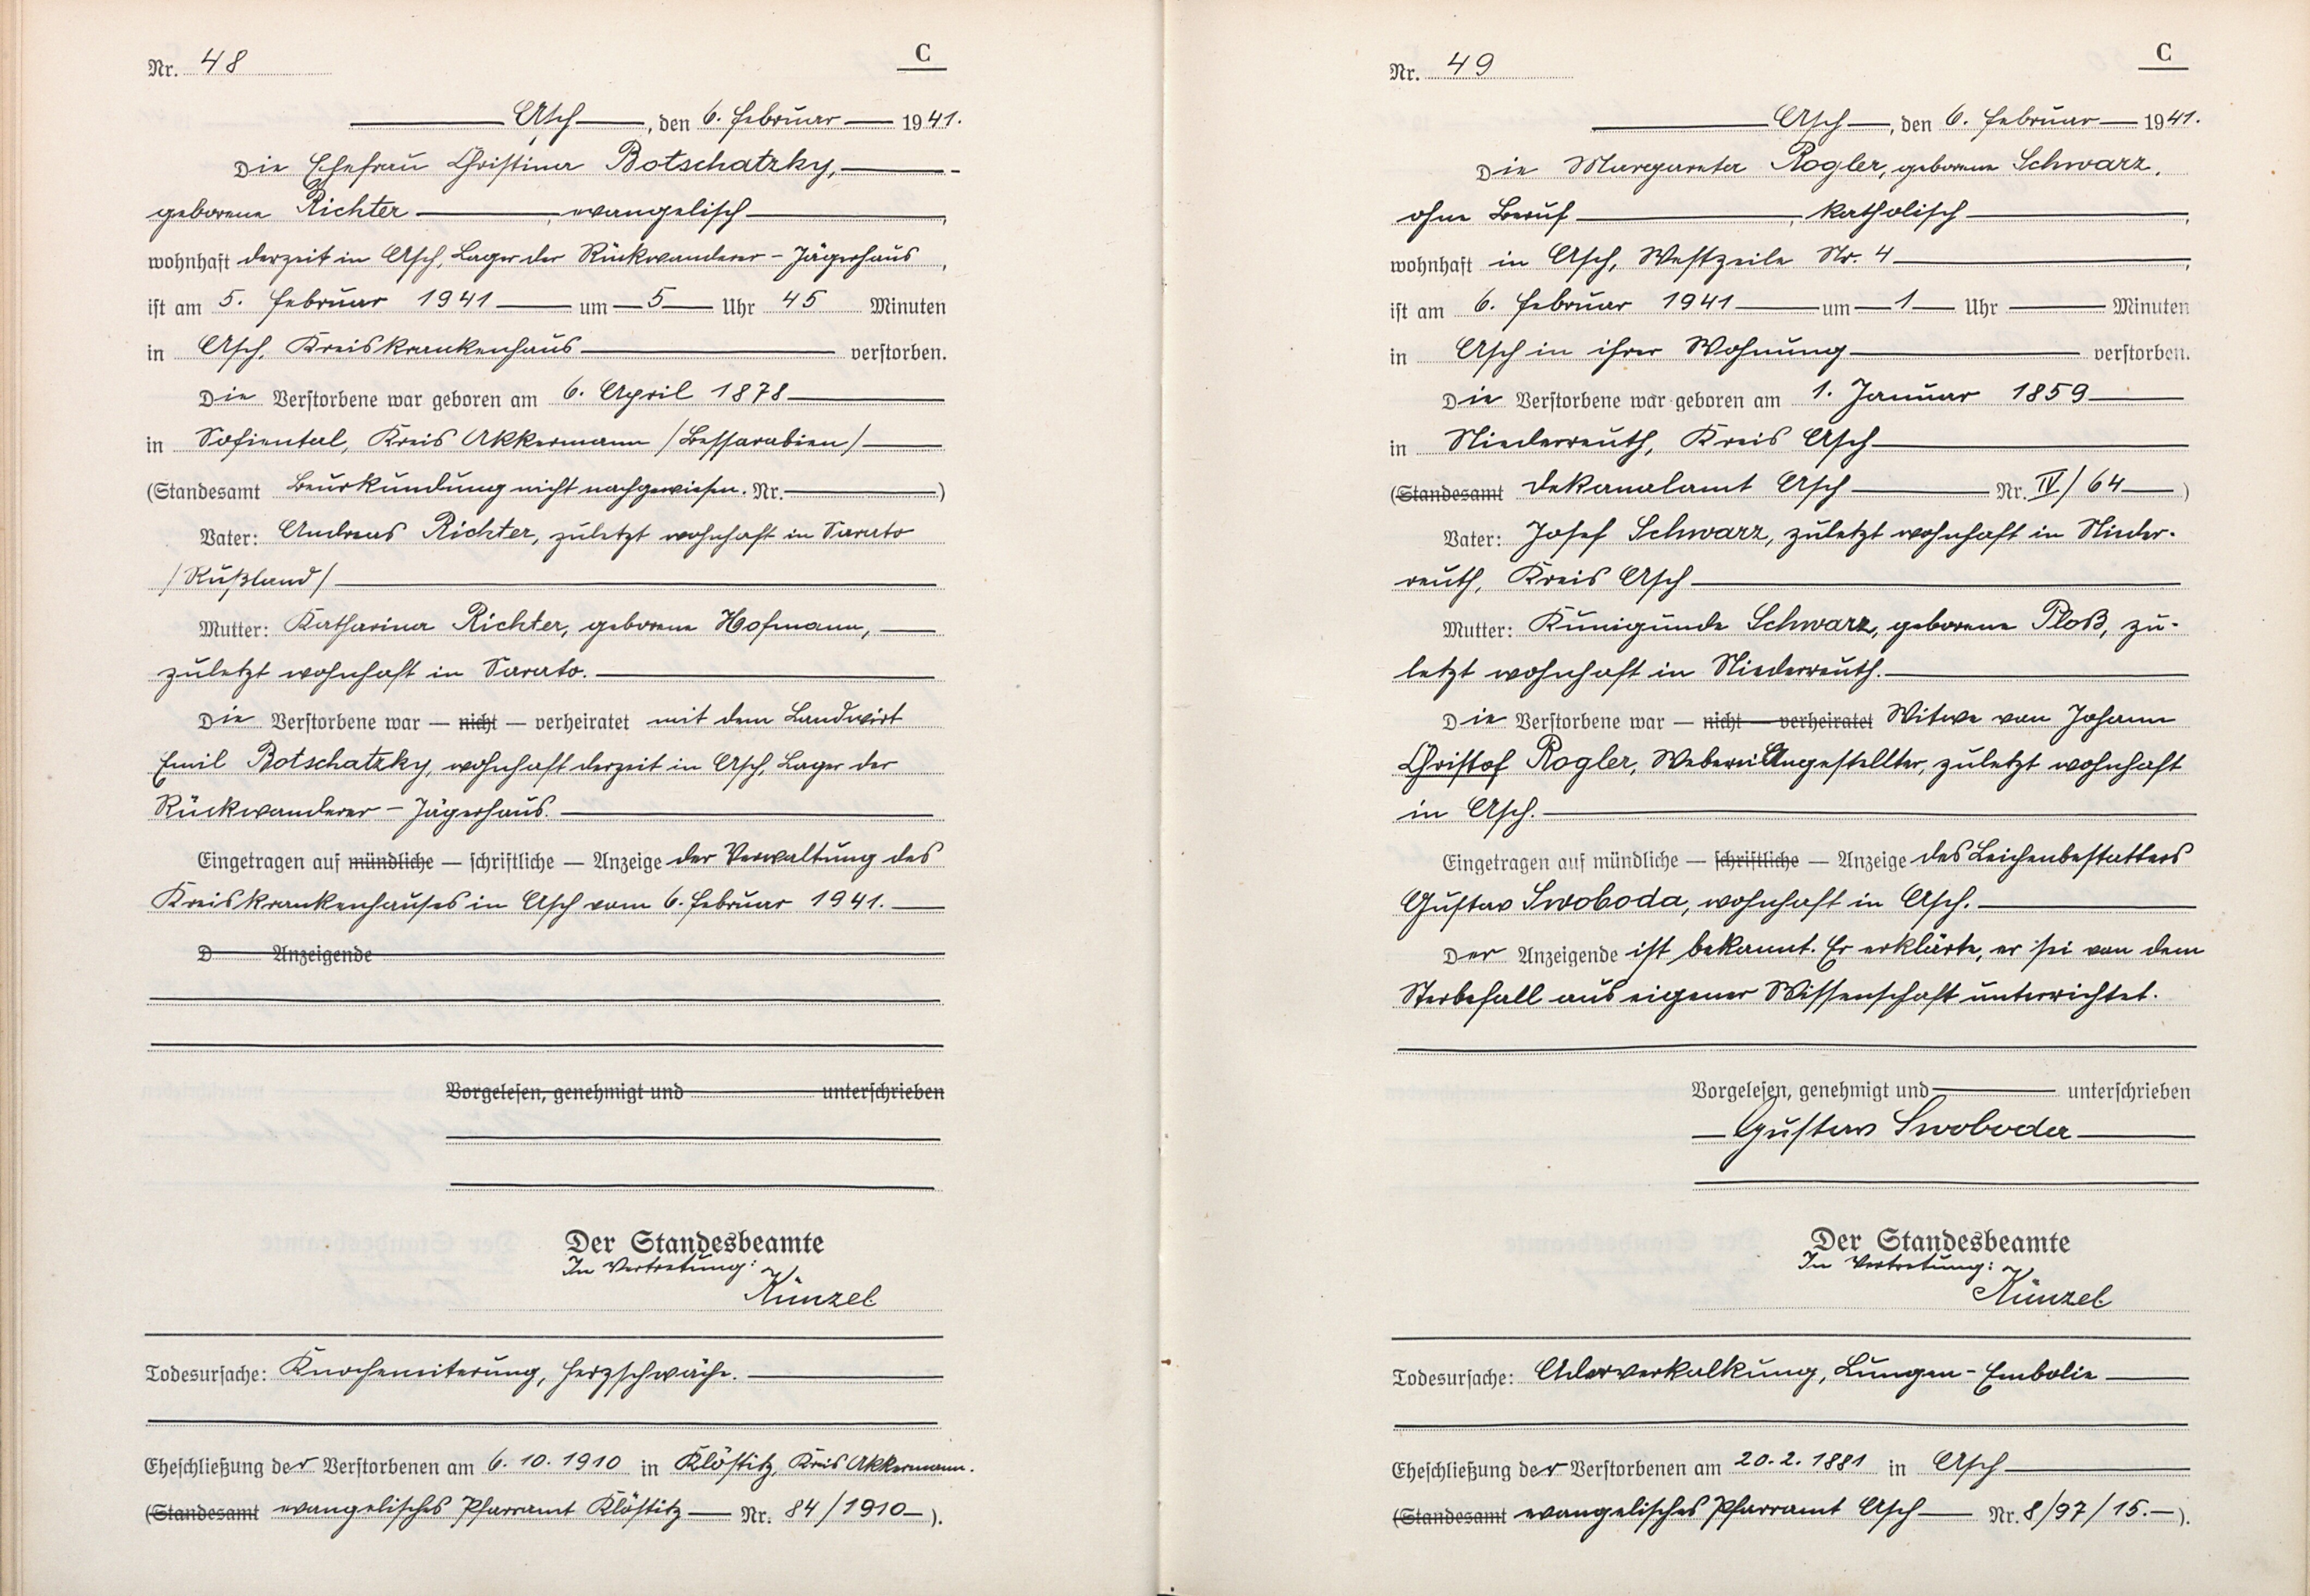 Nr. 48
C
Asch, den 6. Februar 1941.
Die Ehefrau Christina Botschatzky,
geborene Richter, evangelisch,
wohnhaft derzeit in Asch, Lager der Rückwanderer - Jägerhaus,
ist am 5. Februar 1941 um 5 Uhr 45 Minuten
in Asch, Kreiskrankenhaus verstorben.
Die Verstorbene war geboren am 6. April 1878
in Sofiental, Kreis Akkermann /Bessarabien/
(Standesamt Beurkundung nicht nachgewiesen. Nr. )
Vater: Andreas Richter, zuletzt wohnhaft in Sarato
/Rußland/
Mutter: Katharina Richter, geborene Hofmann,
zuletzt wohnhaft in Sarato.
Die Verstorbene war — nicht — verheiratet mit dem Landwirt
Emil Botschatzky, wohnhaft derzeit in Asch, Lager der
Rückwanderer - Jägerhaus.
Eingetragen auf mündliche — schriftliche — Anzeige der Verwaltung des
Kreiskrankenhauses in Asch vom 6. Februar 1941.
D Anzeigende
Vorgelesen, genehmigt und unterschrieben
Der Standesbeamte
In Vertretung:
Künzel
Todesursache: Knocheneiterung, Herzschwäche.
Eheschließung der Verstorbenen am 6. 10. 1910 in Klöstitz, Kreis Akkermann.
(Standesamt evangelisches Pfarramt Klöstitz Nr. 84/1910 ).
Nr. 49
C
Asch, den 6. Februar 1941.
Die Margareta Rogler, geborene Schwarz,
ohne Beruf, katholisch,
wohnhaft in Asch, Westzeile Nr. 4,
ist am 6. Februar 1941 um 1 Uhr Minuten
in Asch in ihrer Wohnung verstorben.
Die Verstorbene war geboren am 1. Januar 1859
in Niederreuth, Kreis Asch
(Standesamt Dekanalamt Asch Nr. IV/64 )
Vater: Josef Schwarz, zuletzt wohnhaft in Nieder-
reuth, Kreis Asch
Mutter: Kunigunde Schwarz, geborene Ploß, zu-
letzt wohnhaft in Niederreuth.
Die Verstorbene war — nicht — verheiratet Witwe von Johann
Christof Rogler, Weberei Angestellter, zuletzt wohnhaft
in Asch.
Eingetragen auf mündliche — schriftliche — Anzeige des Leichenbestatters
Gustav Swoboda, wohnhaft in Asch.
Der Anzeigende ist bekannt. Er erklärte, er sei von dem
Sterbefall aus eigener Wissenschaft unterrichtet.
Vorgelesen, genehmigt und unterschrieben
Gustav Swoboda
Der Standesbeamte
In Vertretung:
Künzel
Todesursache: Aderverkalkung, Lungen-Embolie
Eheschließung der Verstorbenen am 20. 2. 1881 in Asch
(Standesamt evangelisches Pfarramt Asch Nr. 8/97/15. ).